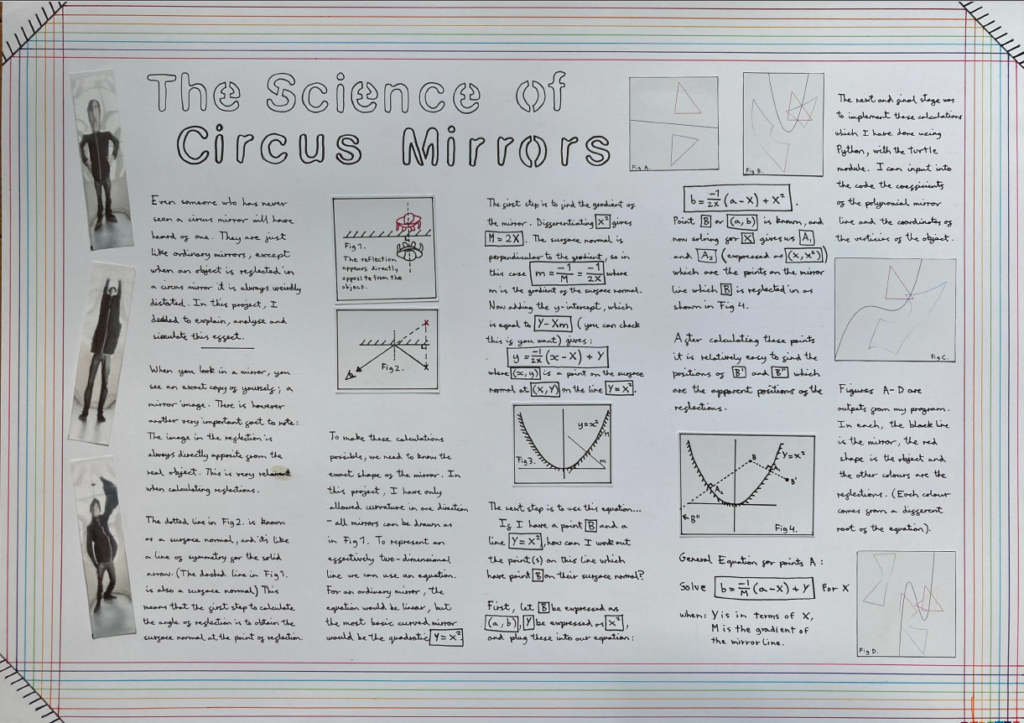 The Science of
Circus Mirrors
Even someone who has never
seen a circus mirror will have
heard of one. They are just
like ordinary mirrors, except
when an object is reflected in
a circus mirror it is always weirdly
distorted. In this project, I
decided to explain, analyse and
simulate this effect.
When you look in a mirror, you
see an exact copy of yourself; a
mirror image. There is however
another very important fact to note:
The image in the reflection is
always directly opposite from the
real object. This is very relevant
when calculating reflections.
The dotted line in Fig 2. is known
as a surface normal, and it's like
a line of symmetry for the solid
arrow. (The dashed line in Fig 1.
is also a surface normal) This
means that the first step to calculate
the angle of reflection is to obtain the
surface normal at the point of reflection
Fig 1.
The reflection
appears directly
opposite from the
object.
Fig 2.
To make these calculations
possible, we need to know the
exact shape of the mirror. In
this project, I have only
allowed curvature in one direction
- all mirrors can be drawn as
in Fig 1. To represent an
effectively two-dimensional
line we can use an equation.
For an ordinary mirror, the
equation would be linear, but
the most basic curved mirror
would be the quadratic Y=X².
The first step is to find the gradient of
the mirror. Differentiating X² gives
M=2X. The surface normal is
perpendicular to the gradient, so in
this case m = -1/M = -1/2X where
m is the gradient of the surface normal.
Now adding the y-intercept, which
is equal to Y-Xm (you can check
this if you want) gives:
y = -1/2X (x-X) + Y
where (x,y) is a point on the surface
normal at (X,Y) on the line Y=X².
y=x²
M
m
Fig 3.
The next step is to use this equation...
If I have a point B and a
line Y=X², how can I work out
the point(s) on this line which
have point B on their surface normal?
First, let B be expressed as
(a,b), Y be expressed as X²,
and plug these into our equation:
Fig A.
Fig B.
b = -1/2X (a-X) + X².
Point B or (a,b) is known, and
now solving for X gives us A₁
and A₂ (expressed as (X,X²))
which are the points on the mirror
line which B is reflected in as
shown in Fig 4.
After calculating these points
it is relatively easy to find the
positions of B' and B" which
are the apparent positions of the
reflections.
Y=X²
B
A₁
B'
A₂
B"
Fig 4.
General Equation for points A:
Solve b = -1/M (a-X) + Y for X
when: Y is in terms of X,
M is the gradient of
the mirror line.
The next and final stage was
to implement these calculations
which I have done using
Python, with the turtle
module. I can input into
the code the coefficients
of the polynomial mirror
line and the coordinates of
the verticies of the object.
Fig C.
Figures A-D are
outputs from my program.
In each, the black line
is the mirror, the red
shape is the object and
the other colours are the
reflections. (Each colour
comes from a different
root of the equation).
Fig D.